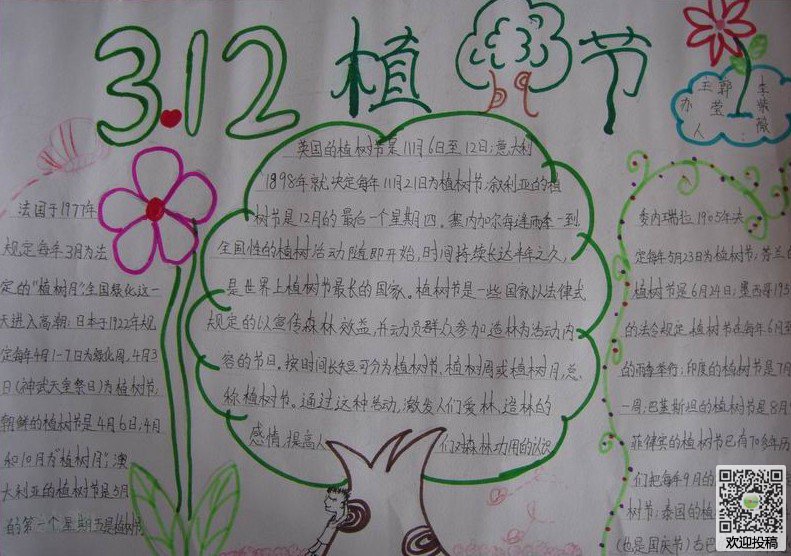 3.12植树节
主办人
郭莹
李紫薇
法国于1977年
规定每年3月为法
定的"植树月"全国绿化这一
天进入高潮;日本于1922年规
定每年4月1-7日为绿化周,4月3
日(神武天皇祭日)为植树节;
朝鲜的植树节是4月6日;4月
和10月为"植树月";澳
大利亚的植树节是5月
的第一个星期五是植树节
英国的植树节是11月6日至12日;意大利
1898年就决定每年11月21日为植树节;叙利亚的植
树节是12月的最后一个星期四。塞内加尔每逢雨季一到
全国性的植树活动随即开始,时间持续长达半年之久,
是世界上植树节最长的国家。植树节是一些国家以法律式
规定的以宣传森林效益,并动员群众参加造林为活动内
容的节日。按时间长短可分为植树节,植树周或植树月,总
称植树节。通过这种活动,激发人们爱林、造林的
感情,提高人们对森林功用的认识
委内瑞拉1905年决
定每年5月23日为植树节;芬兰的
植树节是6月24日;墨西哥195
的法令规定,植树节在每年6月至
的雨季举行;印度的植树节是7月
一周;巴基斯坦的植树节是8月
菲律宾的植树节已有70多年历
们把每年9月的
树节;泰国的植
(也是国庆节)古巴
欢迎投稿